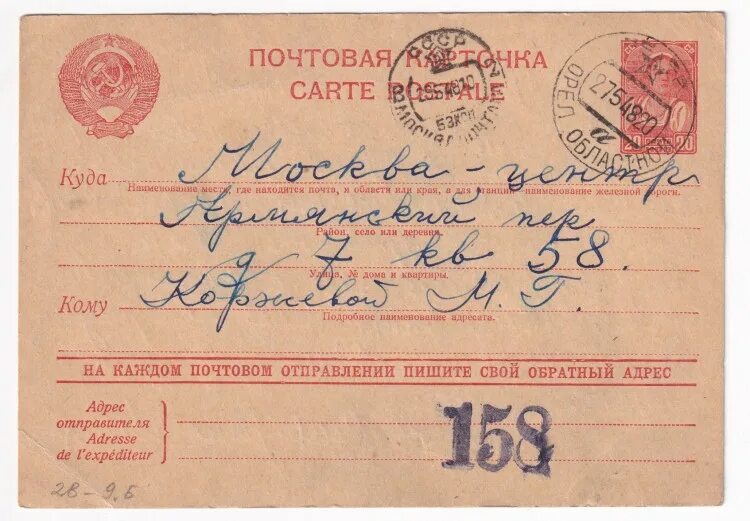 ПОЧТОВАЯ КАРТОЧКА
CARTE POSTALE
СССР
МОСКВА
27 5 48 20
ОРЕЛ ОБЛАСТНОЙ
20 20
Куда Москва - центр
Наименование места, где находится почта, и области или края, а для станции - наименование железной дороги.
Армянский пер
Район, село или деревня.
д 7 кв 58.
Улица, № дома и квартиры.
Кому Коржевой М. Г.
Подробное наименование адресата.
НА КАЖДОМ ПОЧТОВОМ ОТПРАВЛЕНИИ ПИШИТЕ СВОЙ ОБРАТНЫЙ АДРЕС
Адрес
отправителя
Adresse
de l'expéditeur
158
28 - 9.Б